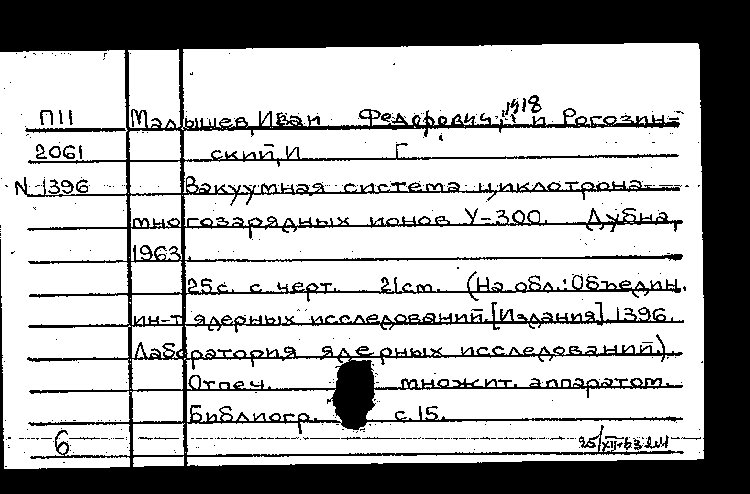 П11 Малышев, Иван Федорович, 1918 и Рогозин-
2061 ский, И Г
N 1396 Вакуумная система циклотрона
многозарядных ионов У-300. Дубна,
1963.
25с. с черт. 21см. (На обл.: Объедин.
ин-т ядерных исследований. [Издания] 1396.
Лаборатория ядерных исследований.)
Отпеч. множит. аппаратом.
Библиогр. с. 15.
6 25/XII-63